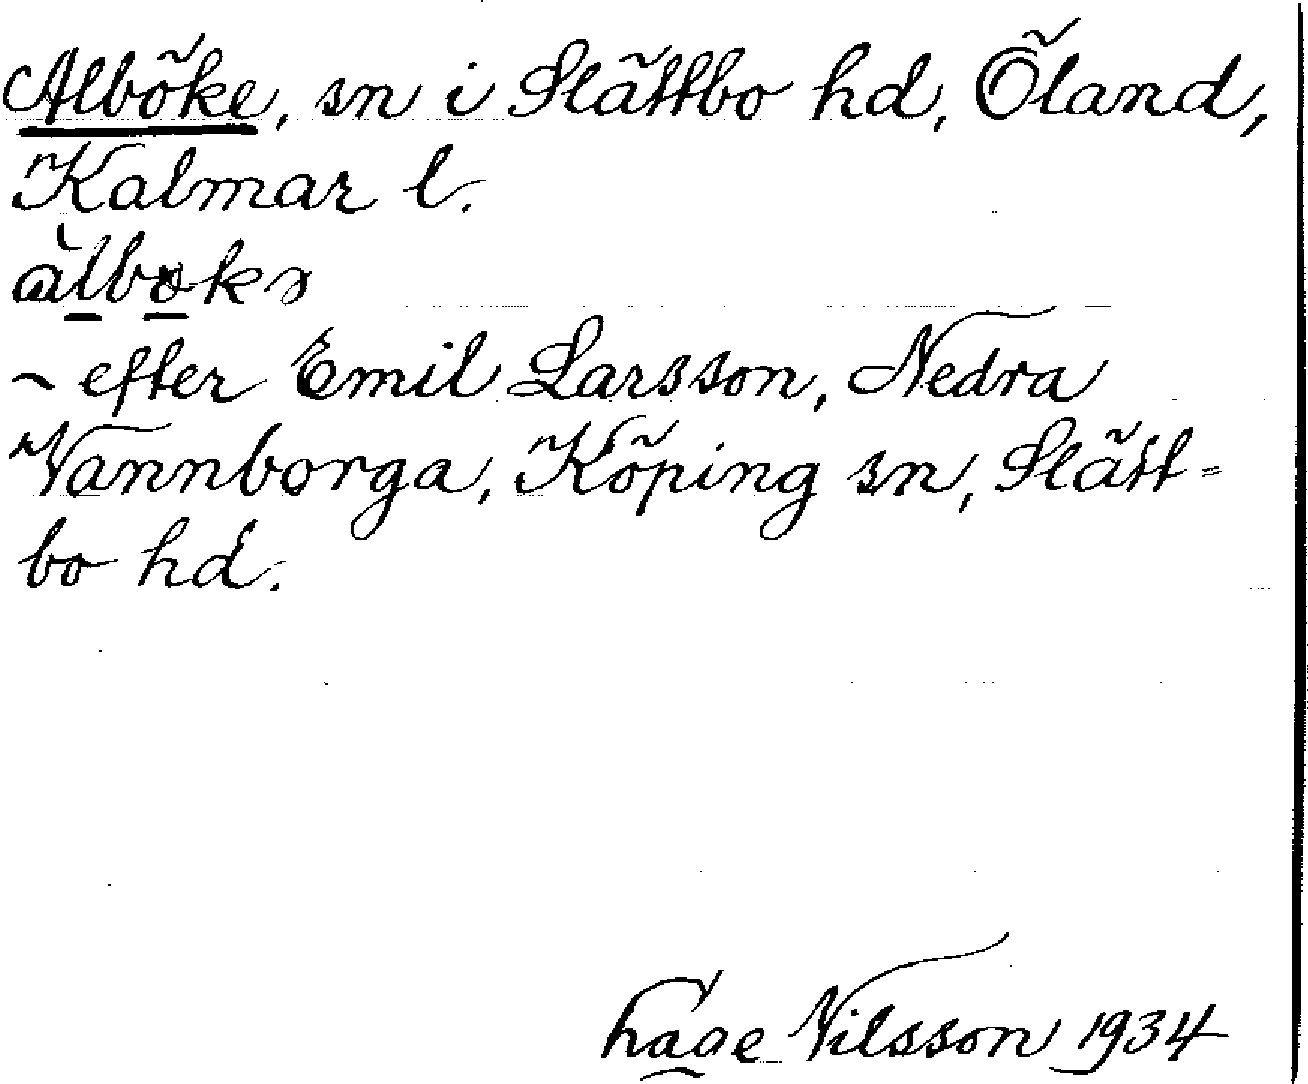 Alböke, sn i Slättbo hd, Öland,
Kalmar l.
àlbökə
~ efter Emil Larsson, Nedra
Vannborga, Köping sn, Slätt-
bo hd.
Nilsson 1934